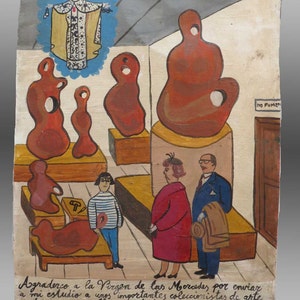 NO FUMAR
Agradezco a la Virgen de las Mercedes por enviar
a mi estudio a unos importantes coleccionistas de arte